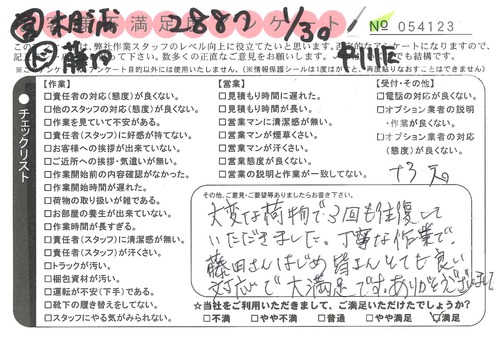 お客様満足度アンケート № 054123
2887 1/30
藤田
このアンケートは、弊社作業スタッフのレベル向上に役立てたいと思います。
数多くの正直なご意見をお願いします。
アンケート目的以外には使用いたしません。(※情報保護シールは1度はがすと、再度貼りなおすことはできません)
チェックリスト
【作業】
□責任者の対応(態度)が良くない。
□他のスタッフの対応(態度)が良くない。
□作業を見ていて不安がある。
□責任者(スタッフ)に好感が持てない。
□お客様への挨拶が出来ていない。
□ご近所への挨拶・気遣いが無い。
□作業開始前の内容確認がなかった。
□作業開始時間が遅れた。
□荷物の取り扱いが雑である。
□お部屋の養生が出来ていない。
□作業時間が長すぎる。
□責任者(スタッフ)に清潔感が無い。
□責任者(スタッフ)が汗くさい。
□トラックが汚い。
□梱包資材が汚い。
□運転が不安(下手)である。
□靴下の履き替えをしてない。
□スタッフにやる気がみられない。
【営業】
□見積もり時間に遅れた。
□見積もり時間が長い。
□営業マンに清潔感が無い。
□営業マンが煙草くさい。
□営業マンが汗くさい。
□営業態度が良くない。
□営業の説明と作業が一致してない。
【受付・その他】
□電話の対応が良くない。
□オプション業者の説明
・作業が良くない。
□オプション業者の対応
(態度)が良くない。
その他、ご意見・ご要望等ありましたらお書き下さい。
大変な荷物で3回も往復して
いただきました。丁寧な作業で、
藤田さんはじめ皆さんとても良い
対応で大満足です。ありがとうございました
☆当社をご利用いただきまして、ご満足いただけたでしょうか?
□不満 □やや不満 □普通 □やや満足 ☑満足